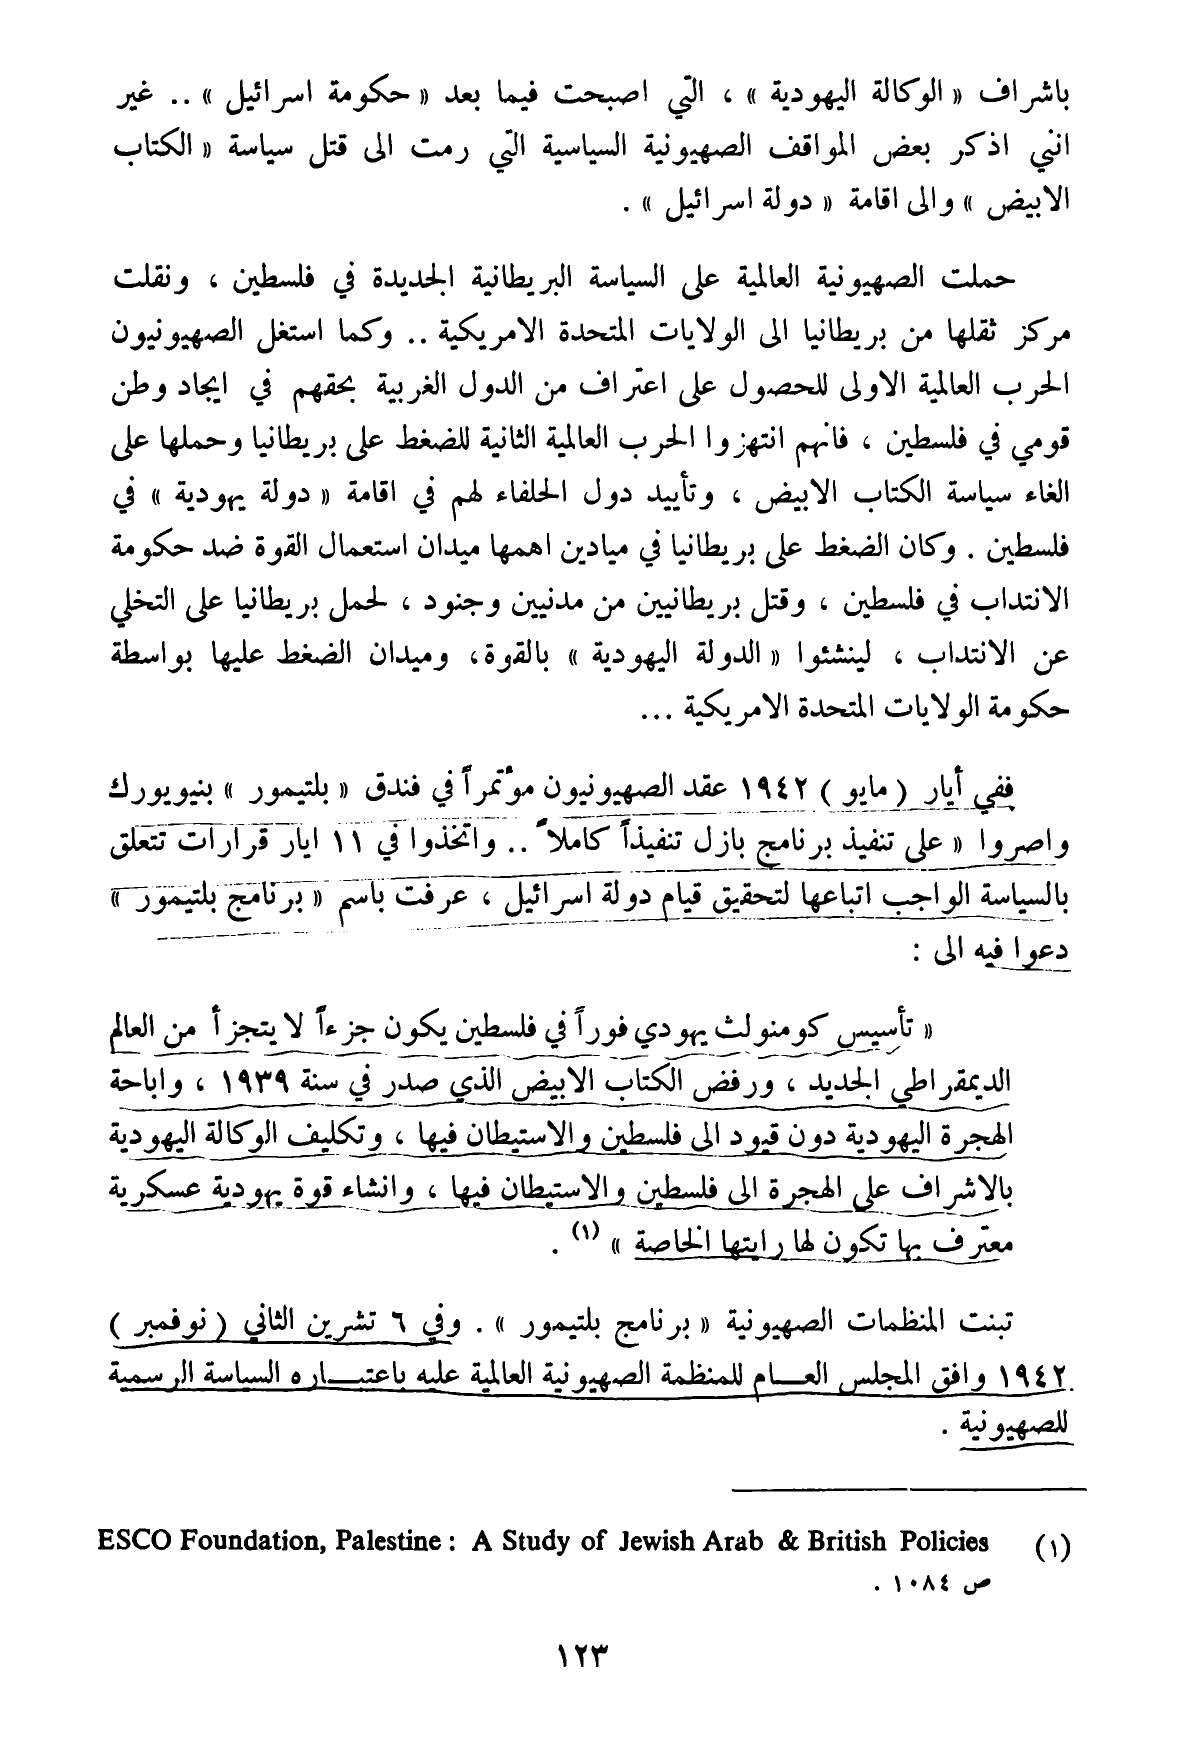 باشراف « الوكالة اليهودية » ، التي اصبحت فيما بعد « حكومة اسرائيل » .. غير
انني اذكر بعض المواقف الصهيونية السياسية التي رمت الى قتل سياسة « الكتاب
الابيض » والى اقامة « دولة اسرائيل » .
حملت الصهيونية العالمية على السياسة البريطانية الجديدة في فلسطين ، ونقلت
مركز ثقلها من بريطانيا الى الولايات المتحدة الامريكية .. وكما استغل الصهيونيون
الحرب العالمية الاولى للحصول على اعتراف من الدول الغربية بحقهم في ايجاد وطن
قومي في فلسطين ، فانهم انتهزوا الحرب العالمية الثانية للضغط على بريطانيا وحملها على
الغاء سياسة الكتاب الابيض ، وتأييد دول الحلفاء لهم في اقامة « دولة يهودية » في
فلسطين . وكان الضغط على بريطانيا في ميادين اهمها ميدان استعمال القوة ضد حكومة
الانتداب في فلسطين ، وقتل بريطانيين من مدنيين وجنود ، لحمل بريطانيا على التخلي
عن الانتداب ، لينشئوا « الدولة اليهودية » بالقوة، وميدان الضغط عليها بواسطة
حكومة الولايات المتحدة الامريكية ...
ففي أيار ( مايو ) ١٩٤٢ عقد الصهيونيون مؤتمراً في فندق « بلتيمور » بنيويورك
واصروا « على تنفيذ برنامج بازل تنفيذاً كاملاً .. واتخذوا في ١١ ايار قرارات تتعلق
بالسياسة الواجب اتباعها لتحقيق قيام دولة اسرائيل ، عرفت باسم « برنامج بلتيمور »
دعوا فيه الى :
« تأسيس كومنولث يهودي فوراً في فلسطين يكون جزءاً لا يتجزأ من العالم
الديمقراطي الجديد ، ورفض الكتاب الابيض الذي صدر في سنة ١٩٣٩ ، واباحة
الهجرة اليهودية دون قيود الى فلسطين والاستيطان فيها ، وتكليف الوكالة اليهودية
بالاشراف على الهجرة الى فلسطين والاستيطان فيها ، وانشاء قوة يهودية عسكرية
معترف بها تكون لها رايتها الخاصة » (١) .
تبنت المنظمات الصهيونية « برنامج بلتيمور » . وفي ٦ تشرين الثاني ( نوفمبر )
١٩٤٢ وافق المجلس العـــام للمنظمة الصهيونية العالمية عليه باعتبـــاره السياسة الرسمية
للصهيونية .
(١) ESCO Foundation, Palestine : A Study of Jewish Arab & British Policies
ص ١٠٨٤ .
١٢٣